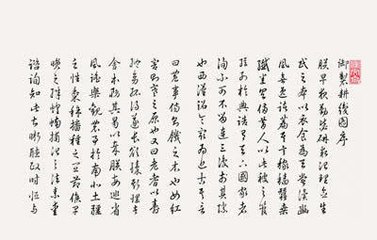 御製耕織圖序
朕早夜勤毖研求治理念生
民之本以衣食為天嘗讀豳
風無逸諸篇其言稼穡蠶桑
纖悉具備昔人以此被之管
弦列於典誥有天下國家者
洵不可不留連三復於其際
也西漢詔令最為近古其言
曰農事傷則飢之本也女紅
害則寒之原也又曰老耆以壽
終幼孤得遂長欲臻斯理者
舍本務其曷以哉朕每巡省
風謠樂觀農事於南北土疆
之性黍稷播種之宜節候早
晚之殊蝗蝻捕治之法素愛
諮詢知此甚晰聽政時恆與